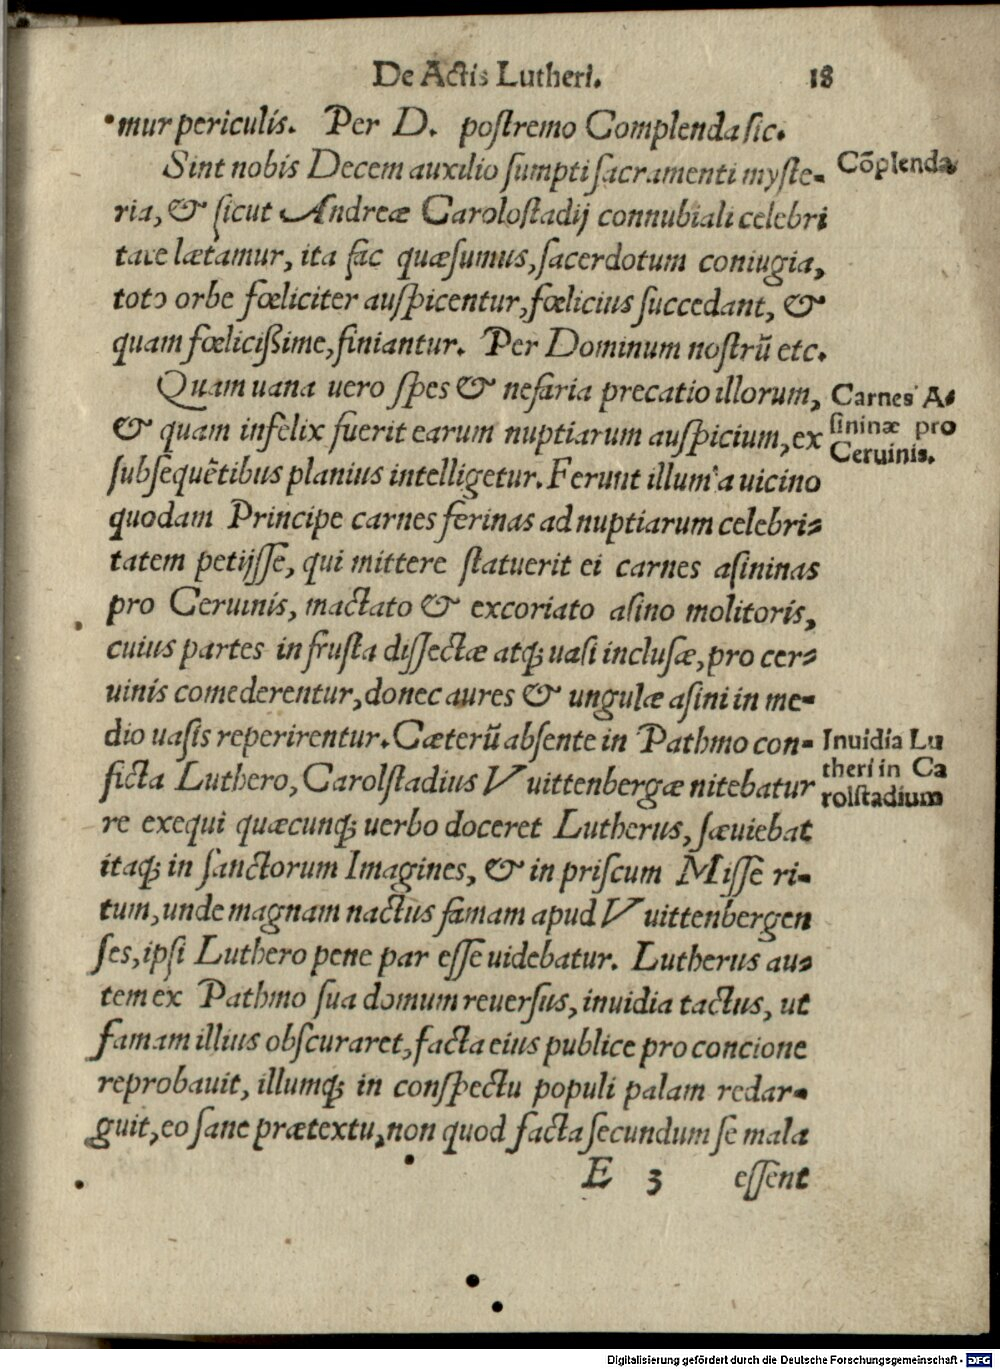 De Actis Lutheri. 18
mur periculis. Per D. postremo Complenda sic.
Sint nobis Decem auxilio sumpti sacramenti myste-
Cõplenda.
ria, & sicut Andreæ Carolostadij connubiali celebri
tate lætamur, ita fac quæsumus, sacerdotum coniugia,
toto orbe fœliciter auspicentur, fœlicius succedant, &
quam fœlicißime, finiantur. Per Dominum nostrũ etc.
Quam uana uero spes & nefaria precatio illorum,
& quam infelix fuerit earum nuptiarum auspicium, ex
Carnes A-
sininæ pro
Ceruinis.
subsequẽtibus planius intelligetur. Ferunt illum a uicino
quodam Principe carnes ferinas ad nuptiarum celebri-
tatem petijsse, qui mittere statuerit ei carnes asininas
pro Ceruinis, mactato & excoriato asino molitoris,
cuius partes in frusta dissectæ atq; uasi inclusæ, pro cer-
uinis comederentur, donec aures & ungulæ asini in me-
dio uasis reperirentur. Cæterũ absente in Pathmo con-
Inuidia Lu
theri in Ca
rolstadium
ficta Luthero, Carolstadius Vuittenbergæ nitebatur
re exequi quæcunq; uerbo doceret Lutherus, sæuiebat
itaq; in sanctorum Imagines, & in priscum Misse ri-
tum, unde magnam nactus famam apud Vuittenbergen
ses, ipsi Luthero pene par esse uidebatur. Lutherus au-
tem ex Pathmo sua domum reuersus, inuidia tactus, ut
famam illius obscuraret, facta eius publice pro concione
reprobauit, illumq; in conspectu populi palam redar-
guit, eo sane prætextu, non quod facta secundum se mala
E 3 essent
Digitalisierung gefördert durch die Deutsche Forschungsgemeinschaft - DFG